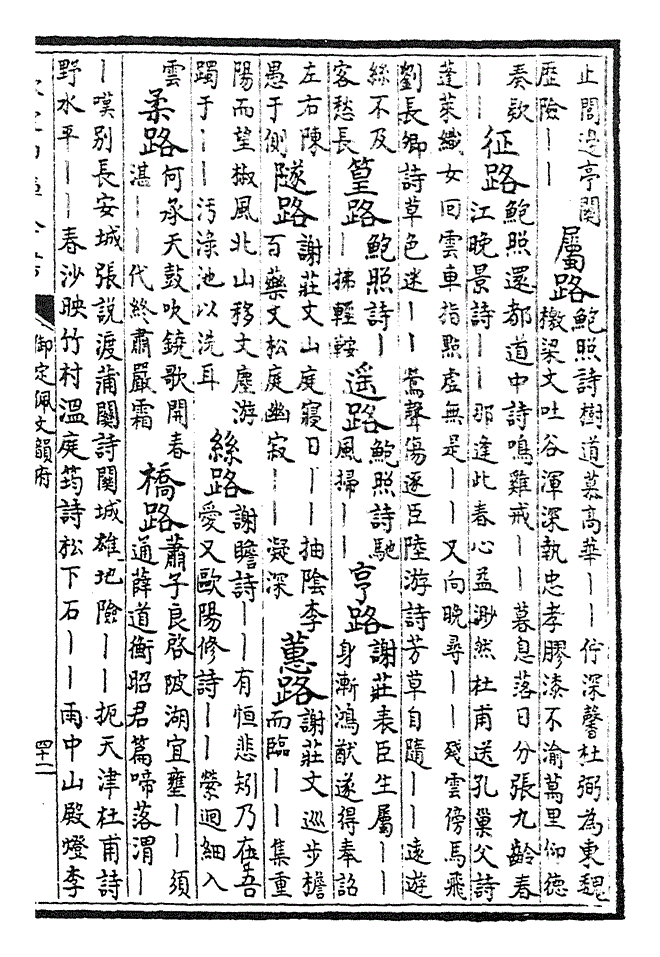 止閣邊亭關
歷險丨丨
屬路
鮑照詩樹道慕高華丨丨佇深馨杜弼為東魏
檄梁文吐谷渾深執忠孝膠漆不渝萬里仰德
奏欵
丨丨
征路
鮑照還都道中詩鳴雞戒丨丨暮息落日分張九齡春
江晚景詩丨丨那逢此春心益渺然杜甫送孔巢父詩
蓬萊織女回雲車指點虛無是丨丨又向晚尋丨丨殘雲傍馬飛
劉長卿詩草色迷丨丨鶯聲傷逐臣陸游詩芳草自隨丨丨遠遊
絲不及
客愁長
篁路
鮑照詩丨
丨拂輕鞍
遥路
鮑照詩馳
風掃丨丨
亨路
謝莊表臣生屬丨丨
身漸鴻猷遂得奉詔
左右陳
愚于側
隧路
謝莊文山庭寢日丨丨抽陰李
百藥文松庭幽寂丨丨凝深
蕙路
謝莊文巡步檐
而臨丨丨集重
陽而望椒風北山移文塵游
躅于丨丨汚淥池以洗耳
絲路
謝瞻詩丨丨有恒悲矧乃在吾
愛又歐陽修詩丨丨縈迴細入
雲
柔路
何承天鼓吹鐃歌開春
湛丨丨代終肅嚴霜
橋路
蕭子良啓陂湖宜壅丨丨須
通薛道衡昭君篇啼落渭丨
丨嘆別長安城張說渡蒲關詩關城雄地險丨丨扼天津杜甫詩
野水平丨丨春沙映竹村溫庭筠詩松下石丨丨雨中山殿燈李
御定佩文韻府
四十二